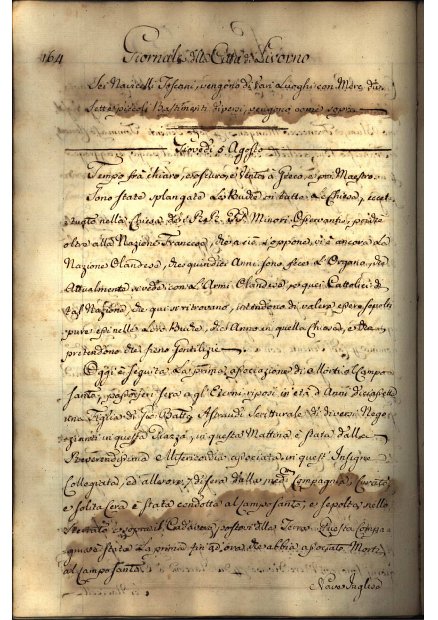 164 Giornale della Città di Livorno
Sei Navicelli Toscani, vengono di vari Luoghi con Merc. diverse
Sette piccoli Bastimenti diversi, vengono come sopra
Giovedì 5 Agosto
Tempo frà chiaro, ed oscuro, e Vento à Greco, e poi Maestro.
Sono state spiangate Le Buche in tutte Le Chiese, eccet-
tuato nella Chiesa de i PP. Minori Osservanti, perche
oltre alla Nazione Francese, che a ciò si oppone, vi è ancora La
Nazione Olandese, che quindici Anni sono fecer L'Organo, che
Attualmente si vede con L'Armi Olandesi, se quei Cattolici di
tal Nazione, che qui si ritrovano, intendono di valere essere sepolti
pure essi nelle Loro Buche, che Anno in quella Chiesa, e che
pretendono che sieno Gentilizie.
Oggi è seguita La prima associazione de Morti al Campo
santo, passò ieri sera a gl'Eterni riposi in età d'Anni diciassette
una Figlia di Gio: Batta Astraudi Scritturale di diversi Nego-
zianti in questa Piazza, in questa Mattina è stata dalla
Reverendissima Misericordia associata in quest'Insigne
Collegiata, ed alle ore 7 di sera dalla med. Compagnia, Curato,
e solita Cera è stata condotta al Campo Santo, e sepolta nello
sterrato e sopra il Cadavere postovi della Terra. Questa Compa-
gnia è stata La prima fin ad ora, che abbia associato Morti
al Campo Santo.
Nave Inglese